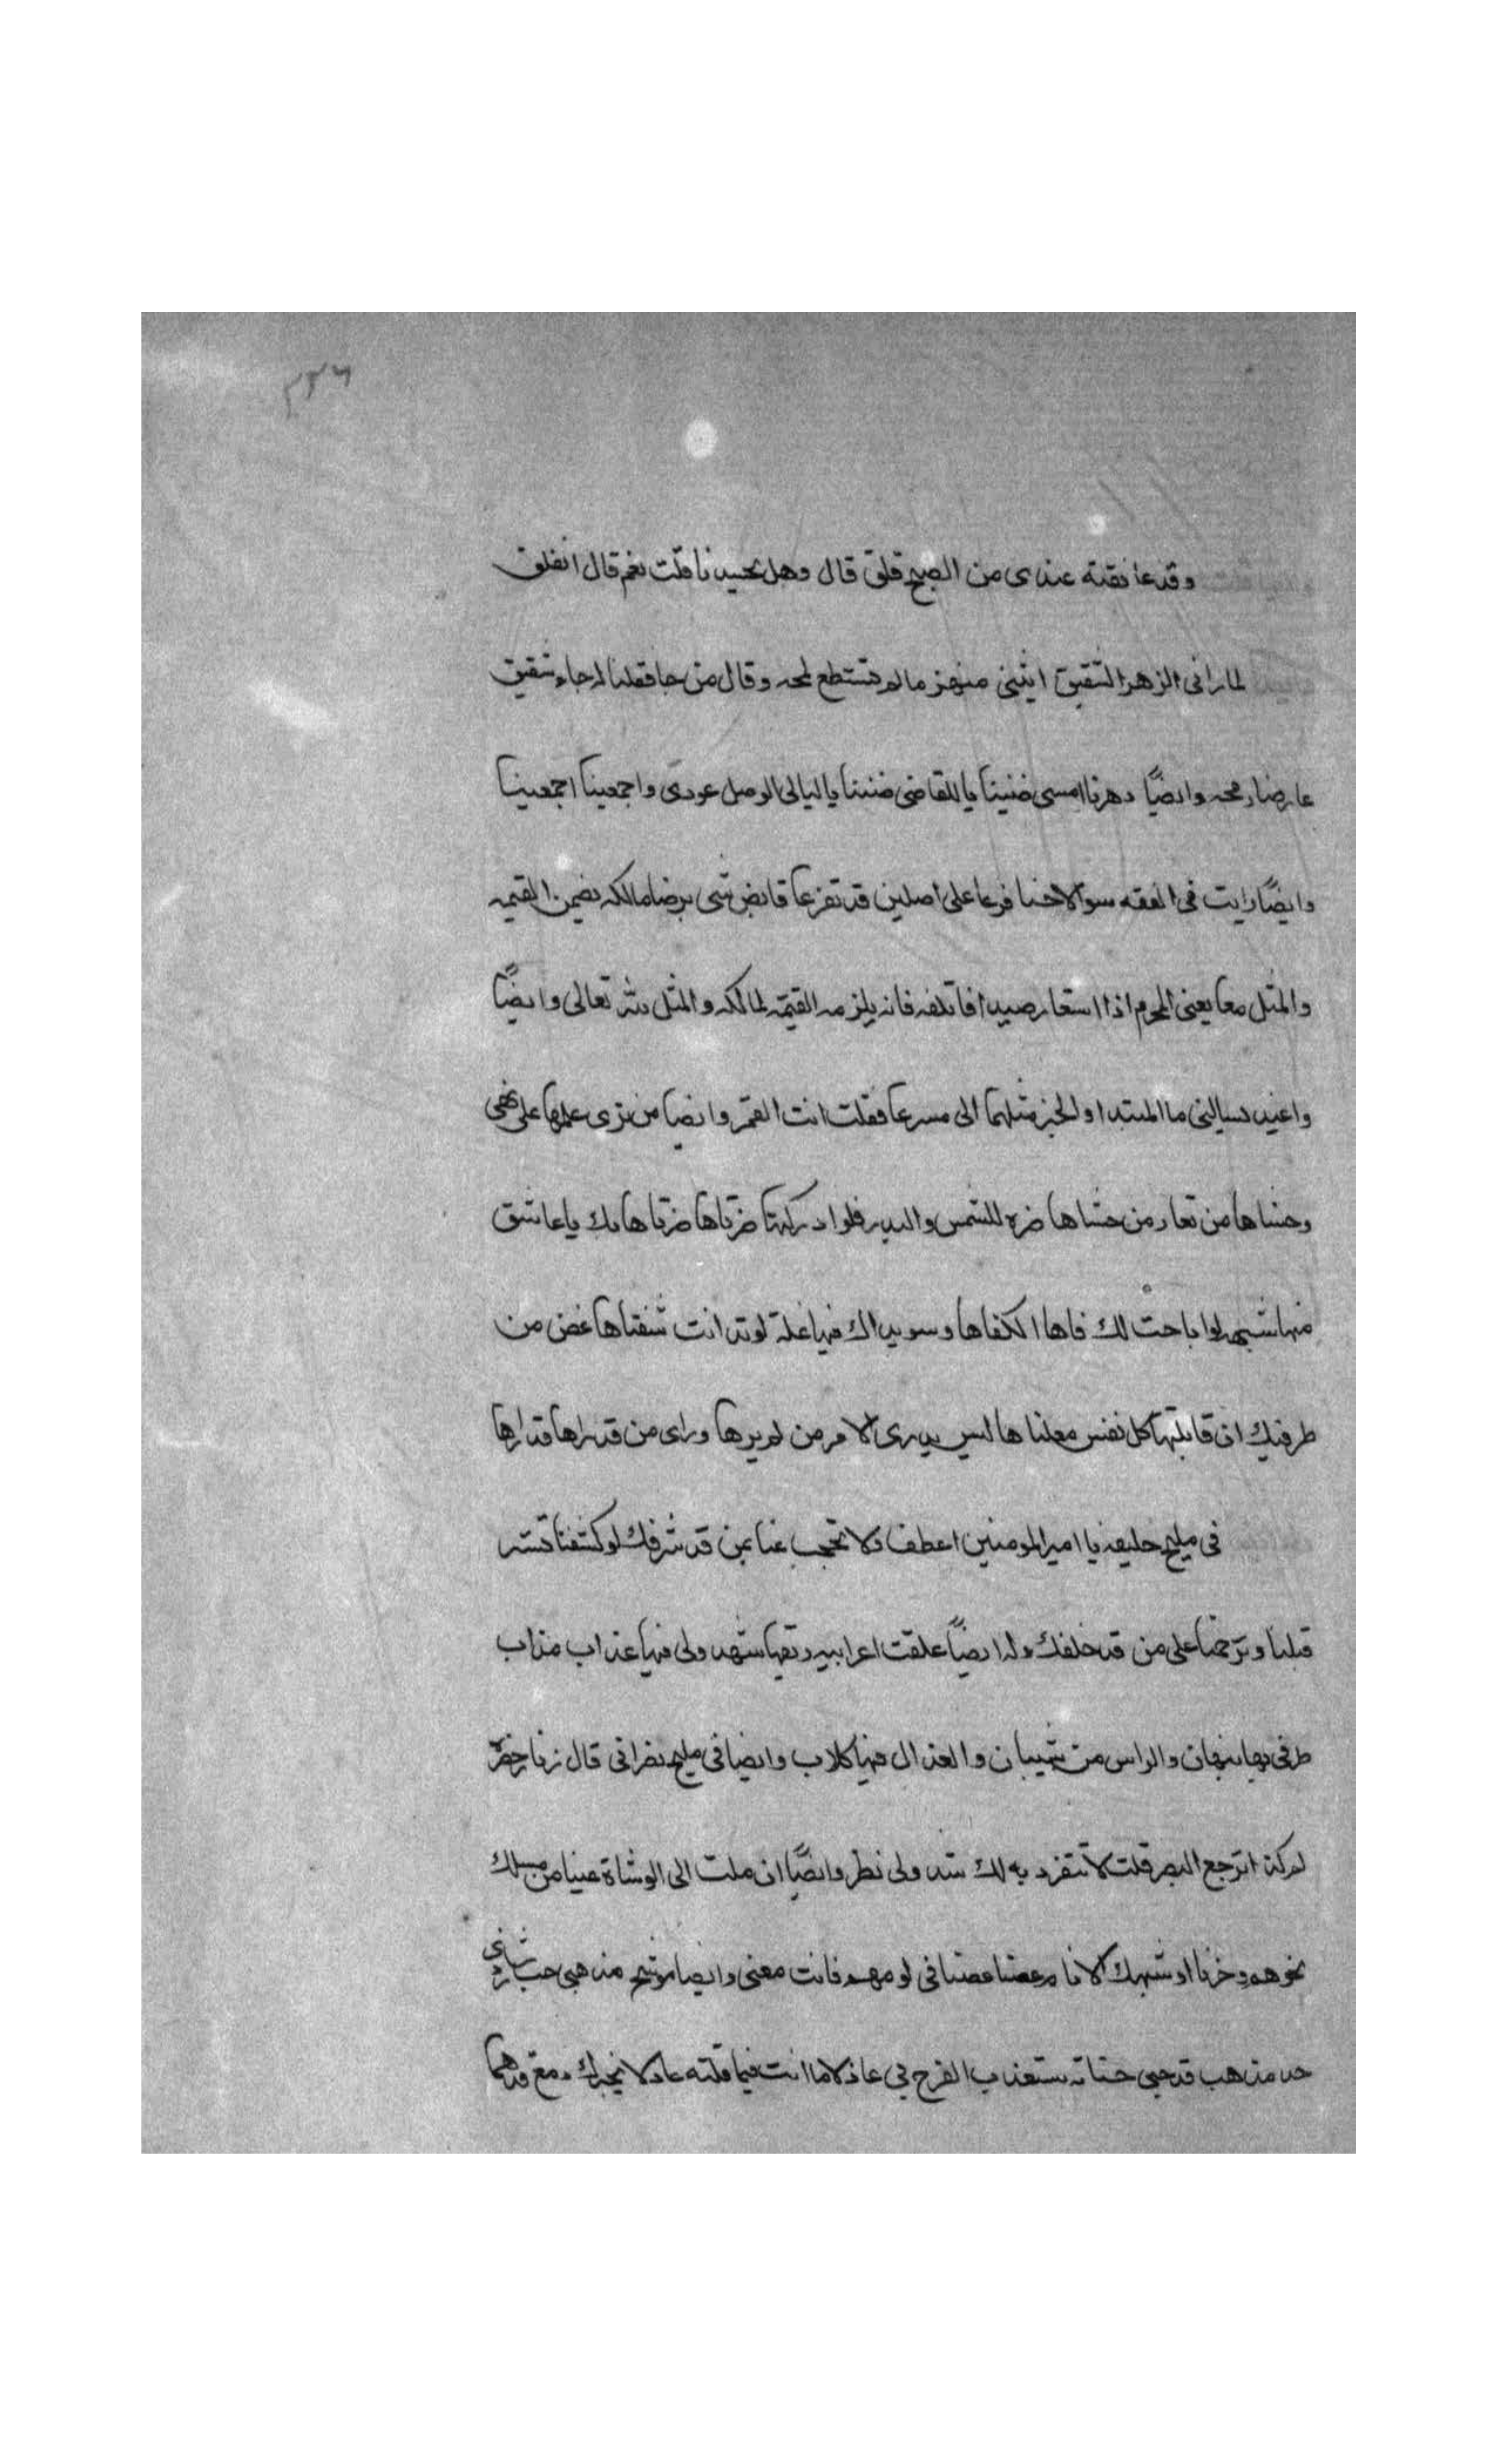 ٢٣٦
وقد عانقته عندى من الصبح قلق قال وهل يحسدنا قلت نعم قال انفلق
لما رانى الزهر الشقيق انثنى منهزما لم تستطع لمحه وقال من جا فقلنا له جاء شقيق
عارضا رمحه وايضًا دهرنا امسى ضنينا باللقا ضى ضنينا يا ليالى الوصل عودى واجمعينا اجمعينا
وايضًا رايت فى الفقه سوالا حسنا فرعا على اصلين قد تفرعا قابض شى برضا مالكه يضمن القيمه
والمثل معا يعنى المحرم اذا استعار صيدا فاتلفه فانه يلزمه القيمة لمالكه والمثل لله تعالى وايضًا
واغيد يسالنى ما المبتدا والخبر مثلهما الى مسرعا فقلت انت القمر وايضا من ترى علمها على
وحسناها من تعار من حسناها ضره للشمس والبدر فلو ادركتها ضرتاها ضرتاها بك يا عاشق
منها شبه لو اباحت لك فاها الكفاها وسويداك فيها غلة لوتدانت شفتاها غض من
طرفيك ان قابلتها كل نفس معلناها ليس يدرى الامر من لم يرها وراى من قد راها قد راها
فى مليح خليفه يا امير المومنين اعطف ولا تحجب عنا بمن قد شرفك لو كشفنا تستر
قبلنا وترحمنا على من قد خلفك وله ايضًا علقت اعرابيه ريقها شهد ولى فيها عذاب مذاب
طرفى بها نبهان والراس من شيبان والعذال فيها كلاب وايضا فى مليح نصرانى قال
لم كذا ترجع البصر قلت لا تنفرد به لك شد ولى نظر وايضًا ان ملت الى الوشاة مينا من مسلك
نحوهم وخزنا او شبهك الانام غصنا غصنا فى لومهم فانت معنى وايضا موشح مذهبى حب رشا ذى
مذهب قد حبى حسنا به يستعذب الفرح بى عاذلا ما انت فيما قلته عادلا